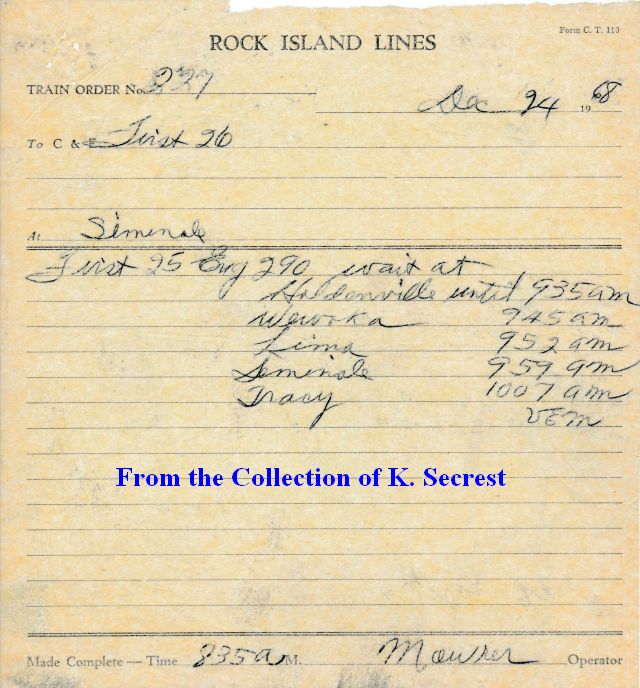 Form C. T. 110
ROCK ISLAND LINES
TRAIN ORDER No. 227
Dec 24 1968
To C & E First 26
At Seminole
First 25 Eng 290 wait at
Holdenville until 935 am
Wewoka 945 am
Lima 952 am
Seminole 959 am
Tracy 1007 am
VEM
From the Collection of K. Secrest
Made Complete — Time 835 A M. Mowrer Operator